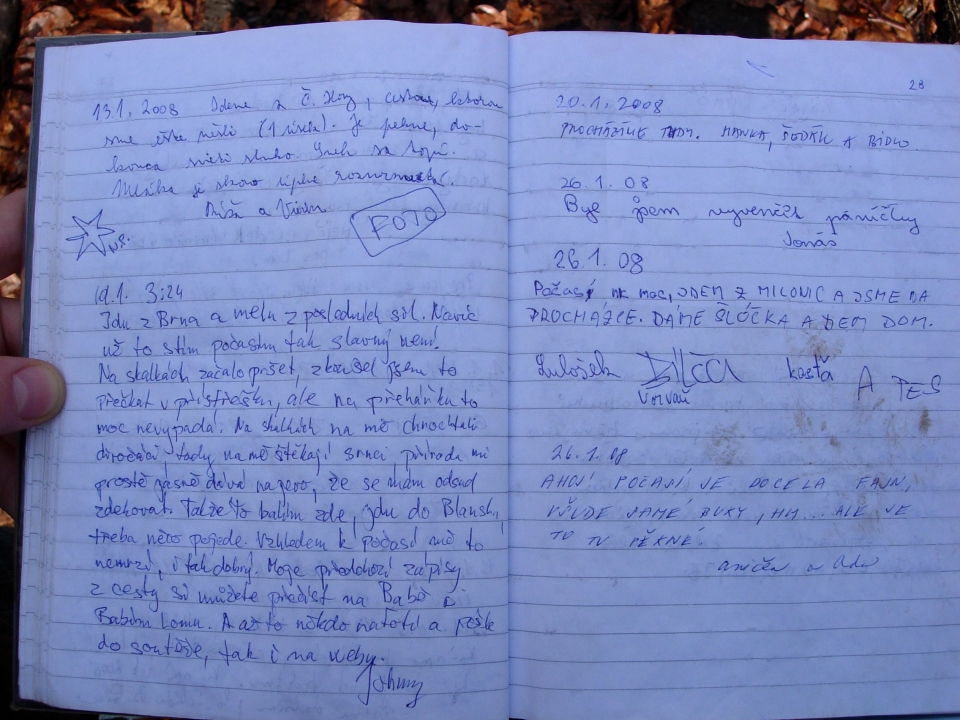 13.1. 2008 Ideme z Č. , cestou, ktorou
sme ešte nešli (1 úsek). Je pekne, do-
konca svieti slnko. Sneh sa topí.
je skoro úplne
a
FOTO
3:24
Jdu z Brna a melu z posledních sil. Navíc
už to s tím počasím tak slavný není.
Na skalkách začalo pršet, zkoušel jsem to
přečkat v přístřešku, ale na přeháňku to
moc nevypadá. Na skalkách na mě chrochtali
divočáci, tady na mě štěkají srnci příroda mi
prostě jasně dává najevo, že se mám odsud
zdekovat. Takže to balim zde, jdu do Blanska,
třeba něco pojede. Vzhledem k počasí mě to
nemrzí, i tak dobrý. Moje předchozí zápisy
z cesty si můžete přečíst na Babě a
Babím Lomu. A až to někdo nafotí a pošle
do soutěže, tak i na webu.
Johnny
28
20.1. 2008
PROCHÁZÍME TUDY. HANKA, ŠODÁK A BIDLO
26.1.08
Byl jsem vyvenčit páníčky
Jonáš
26.1.08
Počasí nic moc, JDEM Z MILONIC A JSME NA
PROCHÁZCE. DÁME ŠLOČKA A DEM DOM.
Lulošek kosťa A PES
Vorvaň
26.1.08
AHOJ POČASÍ JE DOCELA FAJN,
VŠUDE SAMÉ BUKY, HM... ALE JE
TO TU PĚKNÉ.
anička a Ada